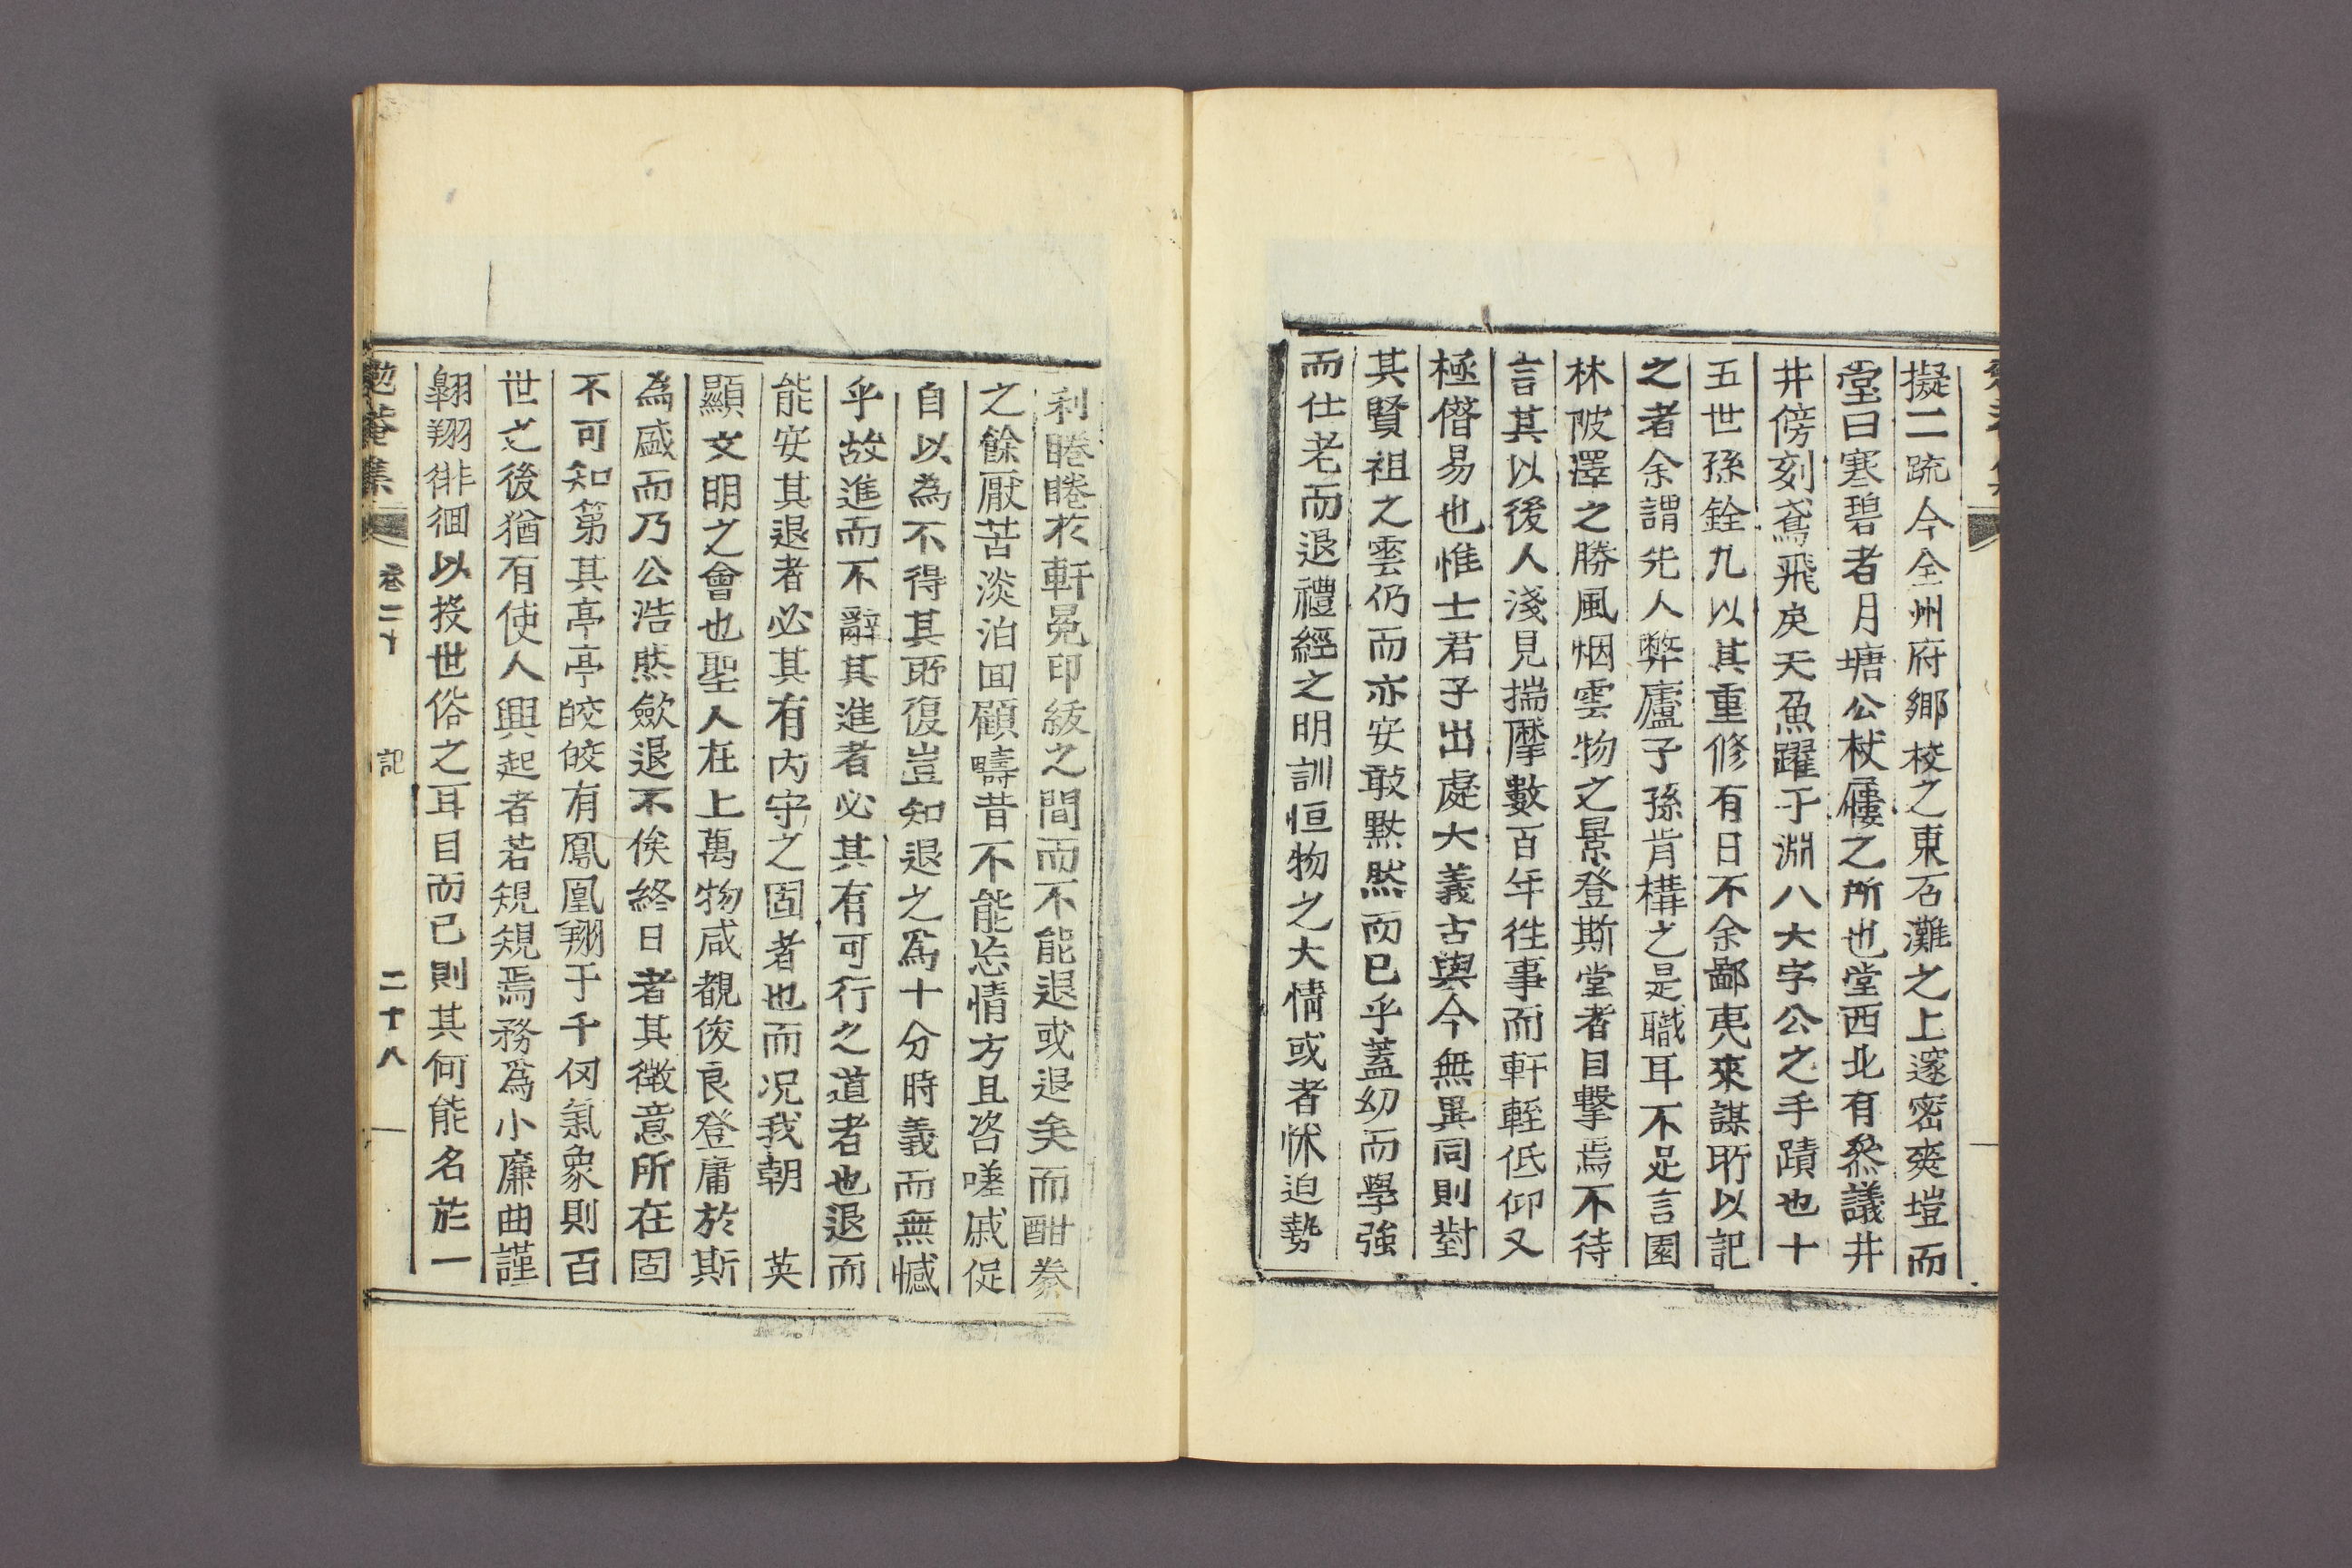 擬二疏今全州府鄉校之東石灘之上邃密爽塏而
堂曰寒碧者月塘公杖屨之所也堂西北有叅議井
井傍刻鳶飛戾天魚躍于淵八大字公之手蹟也十
五世孫銓九以其重修有日不余鄙夷來謀所以記
之者余謂先人弊廬子孫肯構之是職耳不足言園
林陂澤之勝風烟雲物之景登斯堂者目擊焉不待
言其以後人淺見揣摩數百年徃事而軒輊低仰又
極僭易也惟士君子出處大義古與今無異同則對
其賢祖之雲仍而亦安敢黙然而已乎蓋幼而學強
而仕老而退禮經之明訓恒物之大情或者怵迫勢
利睠睠於軒冕印紱之間而不能退或退矣而酣豢
之餘厭苦淡泊囬顧疇昔不能忘情方且咨嗟戚促
自以為不得其所復豈知退之爲十分時義而無憾
乎故進而不辭其進者必其有可行之道者也退而
能安其退者必其有內守之固者也而况我朝　英
顯文明之會也聖人在上萬物咸覩俊良登庸於斯
為盛而乃公浩然歛退不俟終日者其微意所在固
不可知第其亭亭皎皎有鳳凰翔于千仞氣象則百
世之後猶有使人興起者若規規焉務爲小廉曲謹
翺翔徘徊以投世俗之耳目而已則其何能名於一
勉菴集　卷二十　記　二十八